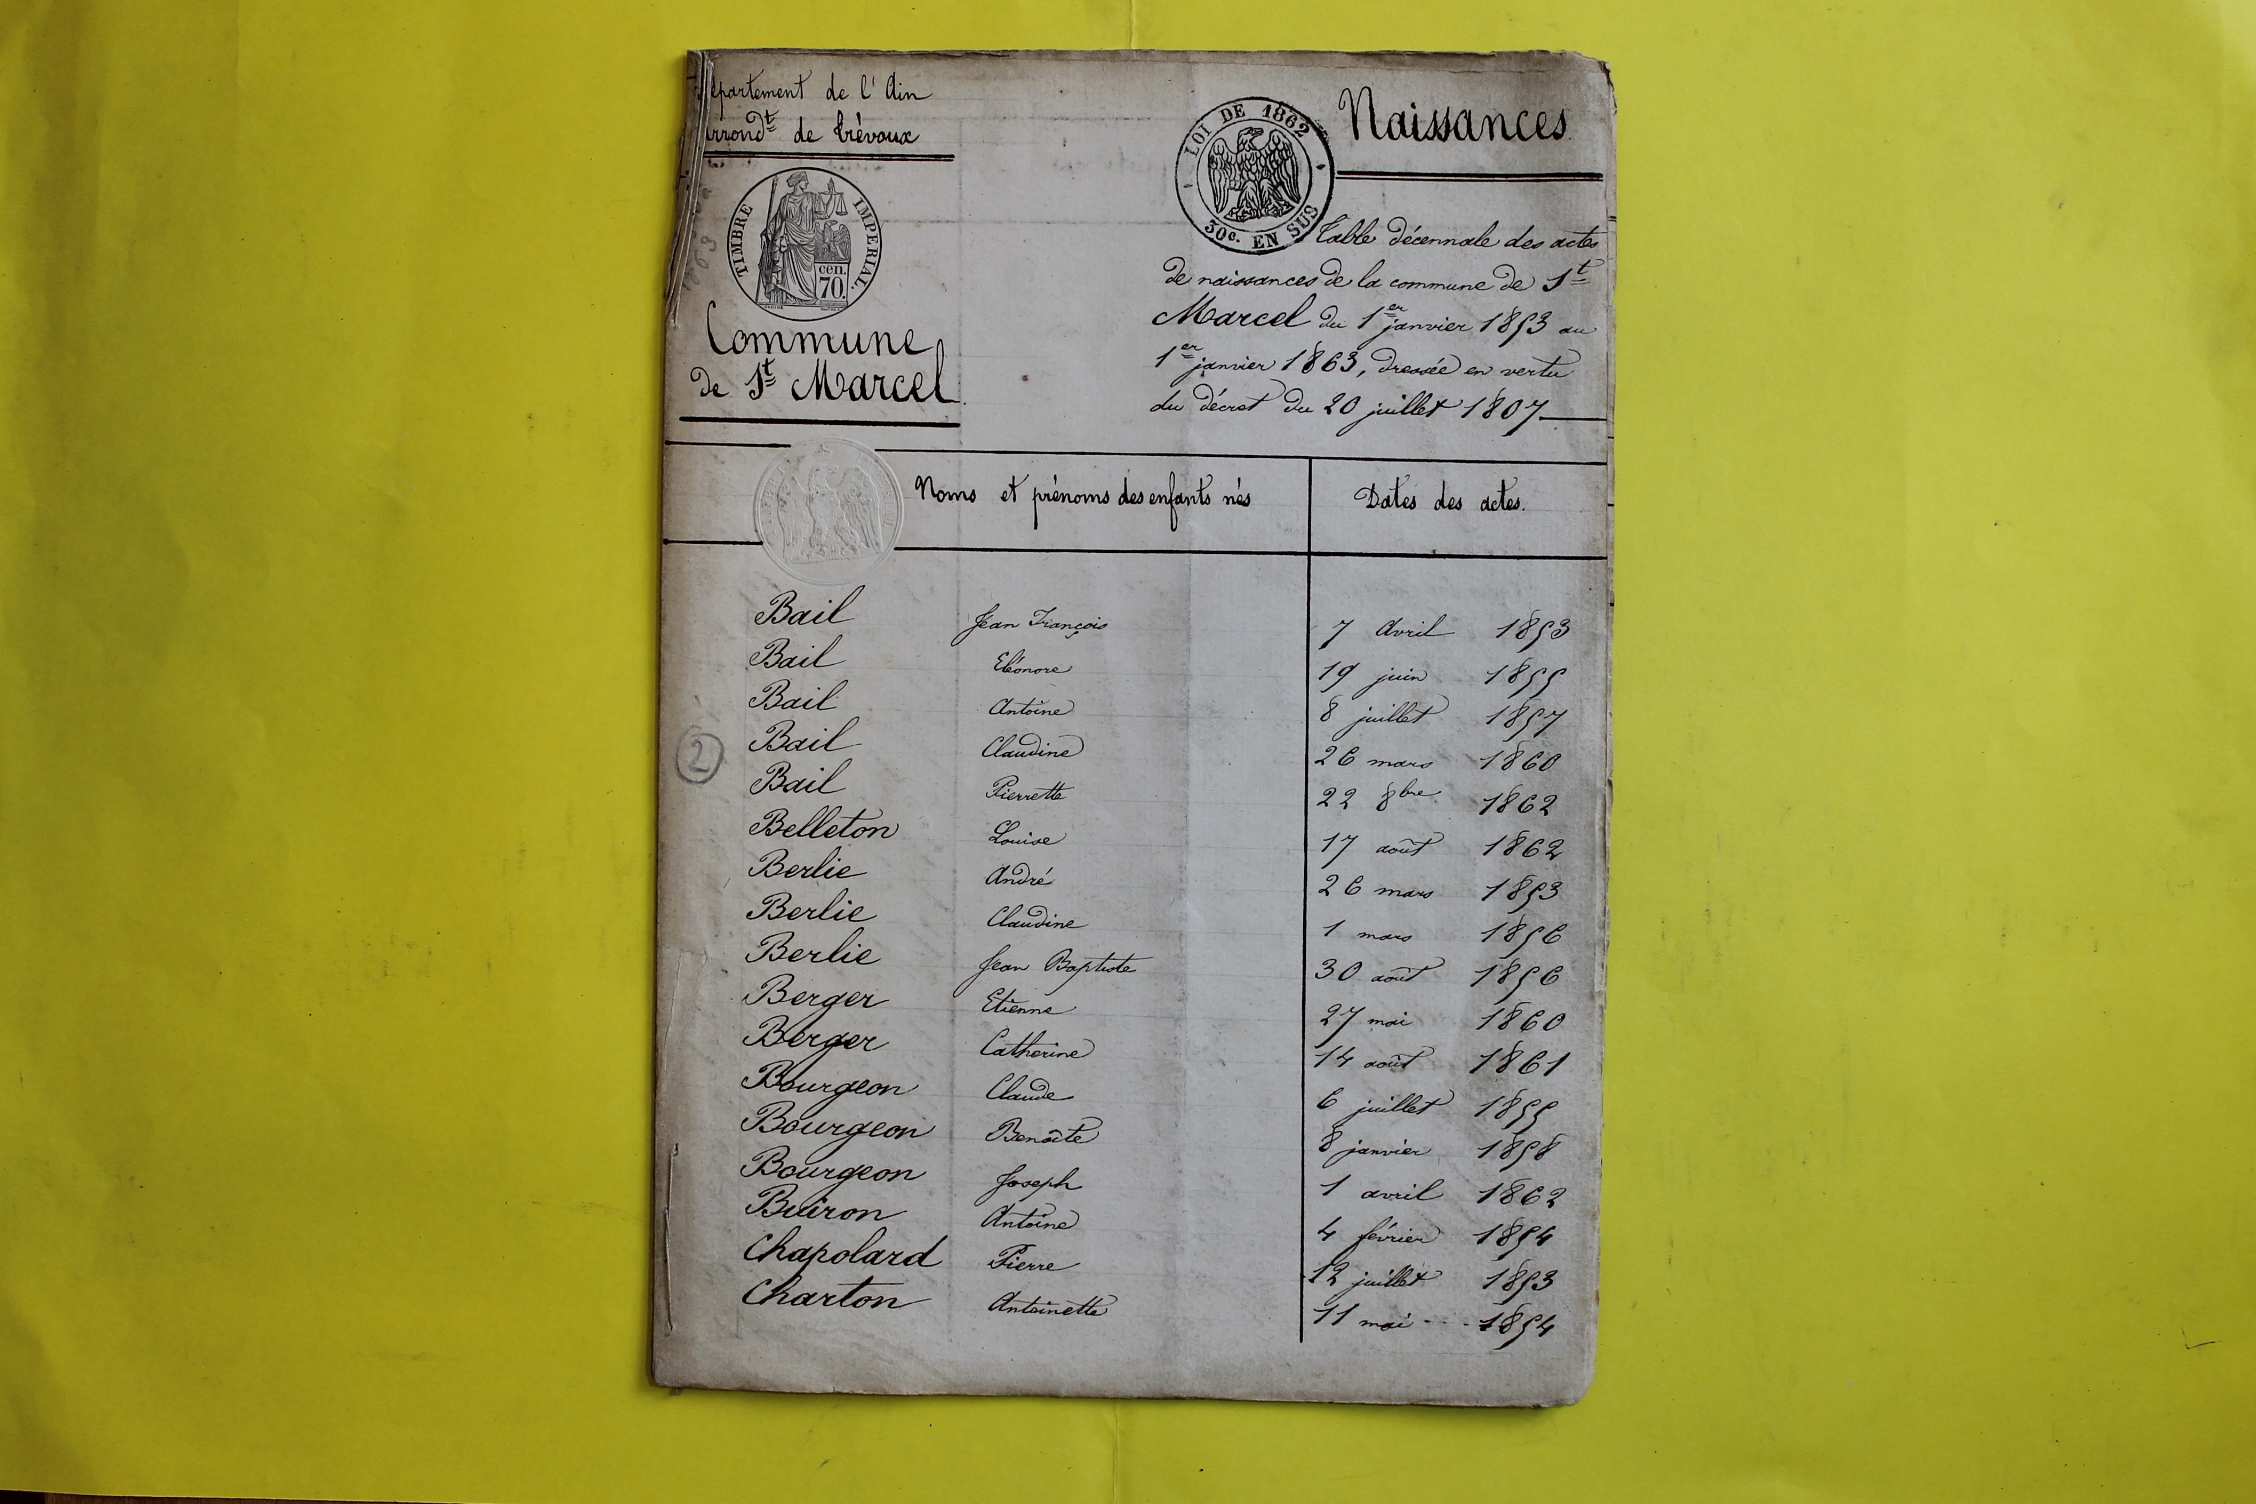 épartement de l'Ain
arrond.t de Trévoux
TIMBRE IMPERIAL.
cen.
70.
Commune
de St Marcel.
LOI DE 1862
30c. EN SUS
Naissances.
Table décennale des actes
de naissances de la commune de St
Marcel du 1er janvier 1853 au
1er janvier 1863, dressée en vertu
du décret du 20 juillet 1807
Noms et prénoms des enfants nés
Dates des actes.
Bail Jean François 7 Avril 1853
Bail Eléonore 19 juin 1855
Bail Antoine 8 juillet 1857
Bail Claudine 26 mars 1860
2
Bail Pierrette 22 8bre 1862
Belleton Louise 17 août 1862
Berlie André 26 mars 1853
Berlie Claudine 1 mars 1856
Berlie Jean Baptiste 30 août 1856
Berger Etienne 27 mai 1860
Berger Catherine 14 août 1861
Bourgeon Claude 6 juillet 1855
Bourgeon Benoîte 8 janvier 1858
Bourgeon Joseph 1 avril 1862
Buiron Antoine 4 février 1854
Chapolard Pierre 12 juillet 1853
Charton Antoinette 11 mai 1854